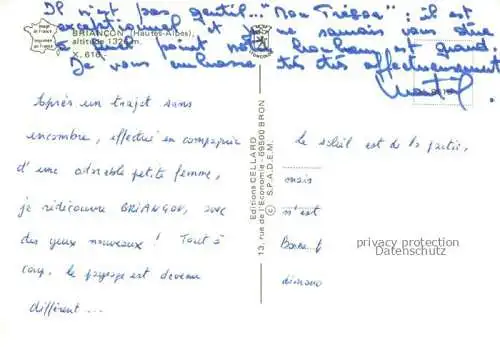 Il n'est pas gentil... Mon Trésor : il est
exceptionnel et je ne saurais vous dire
à quel point notre bonheur est grand.
Je vous embrasse très très affectueusement
BRIANÇON (Hautes-Alpes)
altitude 1326 m.
X. 616
Après un trajet sans
encombre, effectué en compagnie
d'une adorable petite femme,
je redécouvre BRIANÇON, avec
des yeux nouveaux ! Tout à
coup, le paysage est devenu
différent...
Editions CELLARD
13, rue de l'Economie - 69500 BRON
© S.P.A.D.E.M.
Le soleil est de la partie,
mais
n'est
privacy protection
Datenschutz